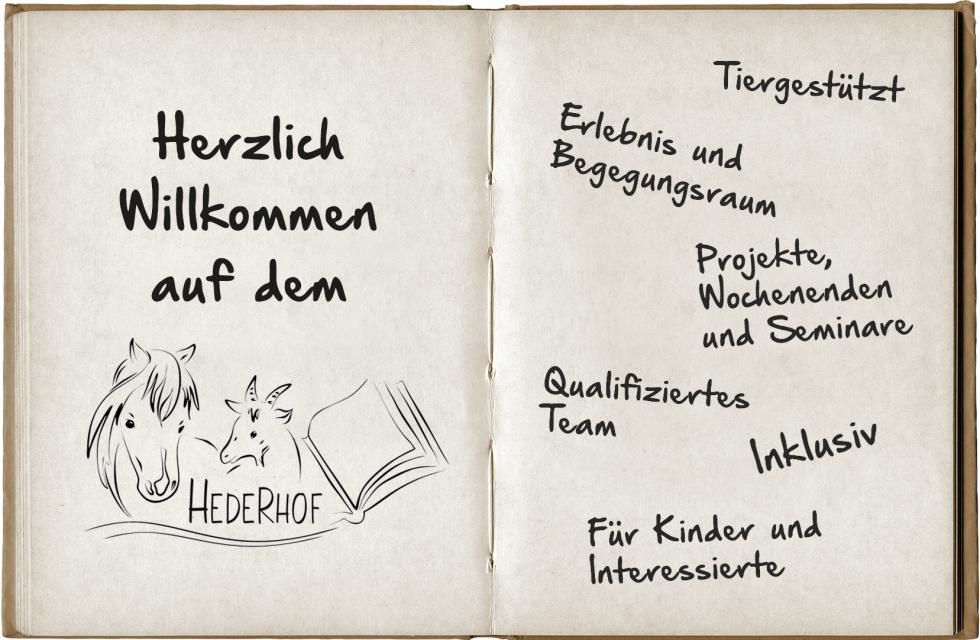 Herzlich
Willkommen
auf dem
HEDERHOF
Tiergestützt
Erlebnis und
Begegungsraum
Projekte,
Wochenenden
und Seminare
Qualifiziertes
Team
Inklusiv
Für Kinder und
Interessierte